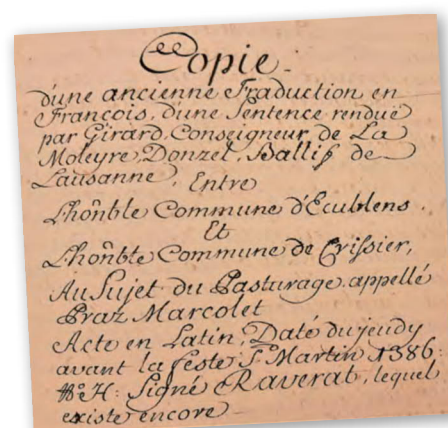 Copie
d'une ancienne Traduction en
François, d'une Sentence rendüe
par Girard, Conseigneur, de La
Moleyre, Donzel, Ballif de
Lausanne, Entre
L'honble Commune d'Ecublens
Et
L'honble Commune de Crissier,
Au Sujet du Pasturage appellé
Praz Marcolet
Acte en Latin, Daté du jeudy
avant la feste St Martin 1386.
H: Signé Raverat, lequel
existe encore